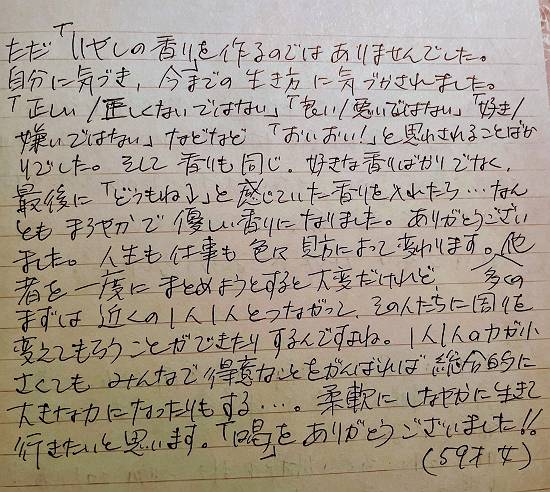 ただ「いやしの香りを作るのではありませんでした。
自分に気づき、今までの生き方に気づかされました。
「正しい/正しくないではない」「良い/悪いではない」「好き/
嫌いではない」などなど「おいおい!」と思わされることばか
りでした。そして香りも同じ。好きな香りばかりでなく、
最後に「どうもね↓」と感じていた香りを入れたら…なん
ともまろやかで優しい香りになりました。ありがとうござい
ました。人生も仕事も色々見方によって変わります。多くの他
者を一度にまとめようとすると大変だけれど、
まずは近くの1人1人とつながって、その人たちに周りを
変えてもらうことができたりするんですよね。1人1人の力が小
さくてもみんなで得意なことをがんばれば総合的に
大きな力になったりもする…。柔軟にしなやかに生きて
行きたいと思います。「喝」をありがとうございました!!
(59才.女)